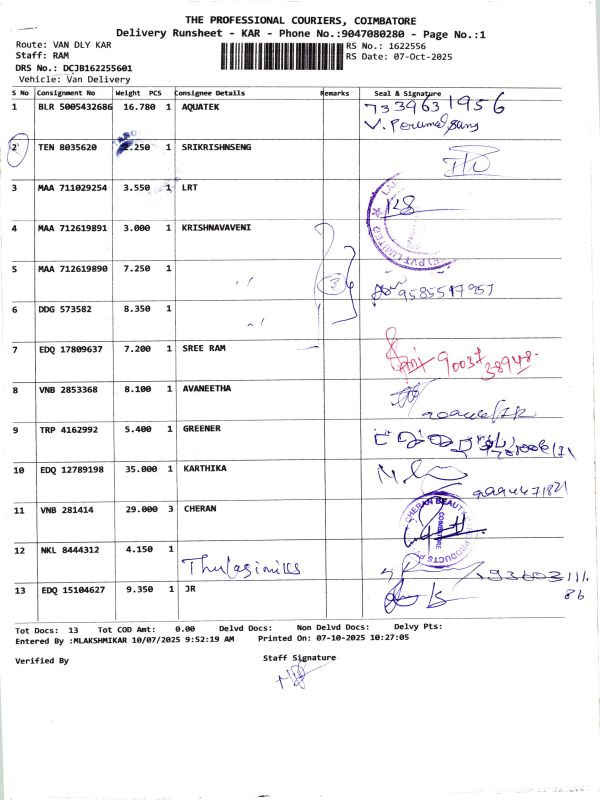 THE PROFESSIONAL COURIERS, COIMBATORE
Delivery Runsheet - KAR - Phone No.:9047080280 - Page No.:1
Route: VAN DLY KAR
RS No.: 1622556
Staff: RAM
RS Date: 07-Oct-2025
DRS No.: DCJB162255601
Vehicle: Van Delivery
S No Consignment No Weight PCS Consignee Details Remarks Seal & Signature
1 BLR 5005432686 16.780 1 AQUATEK 7339631956
V. Perumal
2 TEN 8035620 2.250 1 SRIKRISHNSENG
3 MAA 711029254 3.550 1 LRT
4 MAA 712619891 3.000 1 KRISHNAVAVENI
PVT LIMITED
5 MAA 712619890 7.250 1 " 3 9585597957
6 DDG 573582 8.350 1 "
7 EDQ 17809637 7.200 1 SREE RAM 90037
38948
8 VNB 2853368 8.100 1 AVANEETHA
9 TRP 4162992 5.400 1 GREENER
10 EDQ 12789198 35.000 1 KARTHIKA
9994471821
11 VNB 281414 29.000 3 CHERAN CHERAN BEAUTY PRODUCTS COIMBATORE
12 NKL 8444312 4.150 1 Thulasimills 93603111
86
13 EDQ 15104627 9.350 1 JR
Tot Docs: 13 Tot COD Amt: 0.00 Delvd Docs: Non Delvd Docs: Delvy Pts:
Entered By :MLAKSHMIKAR 10/07/2025 9:52:19 AM Printed On: 07-10-2025 10:27:05
Verified By
Staff Signature